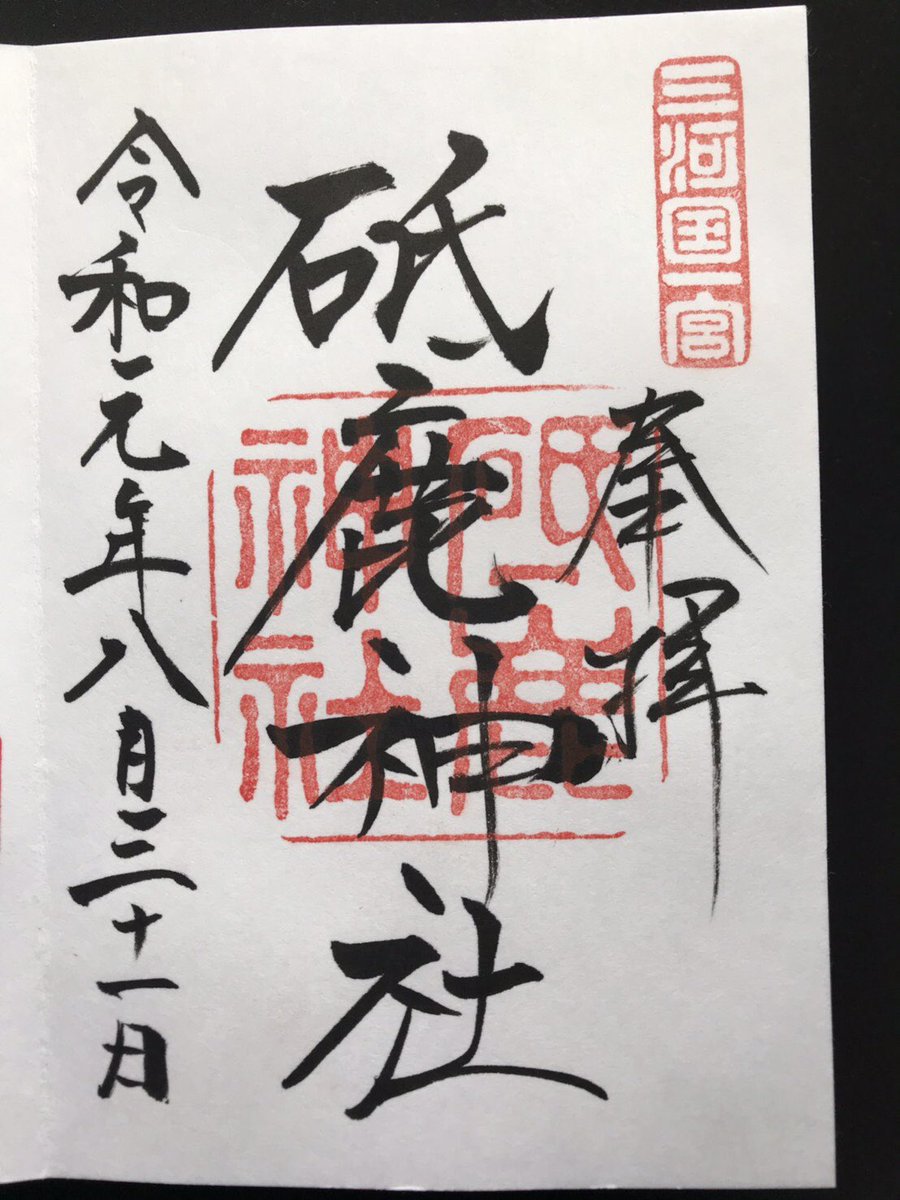 三河国一宮
奉拝
砥鹿神社
砥鹿神社
令和元年八月三十一日